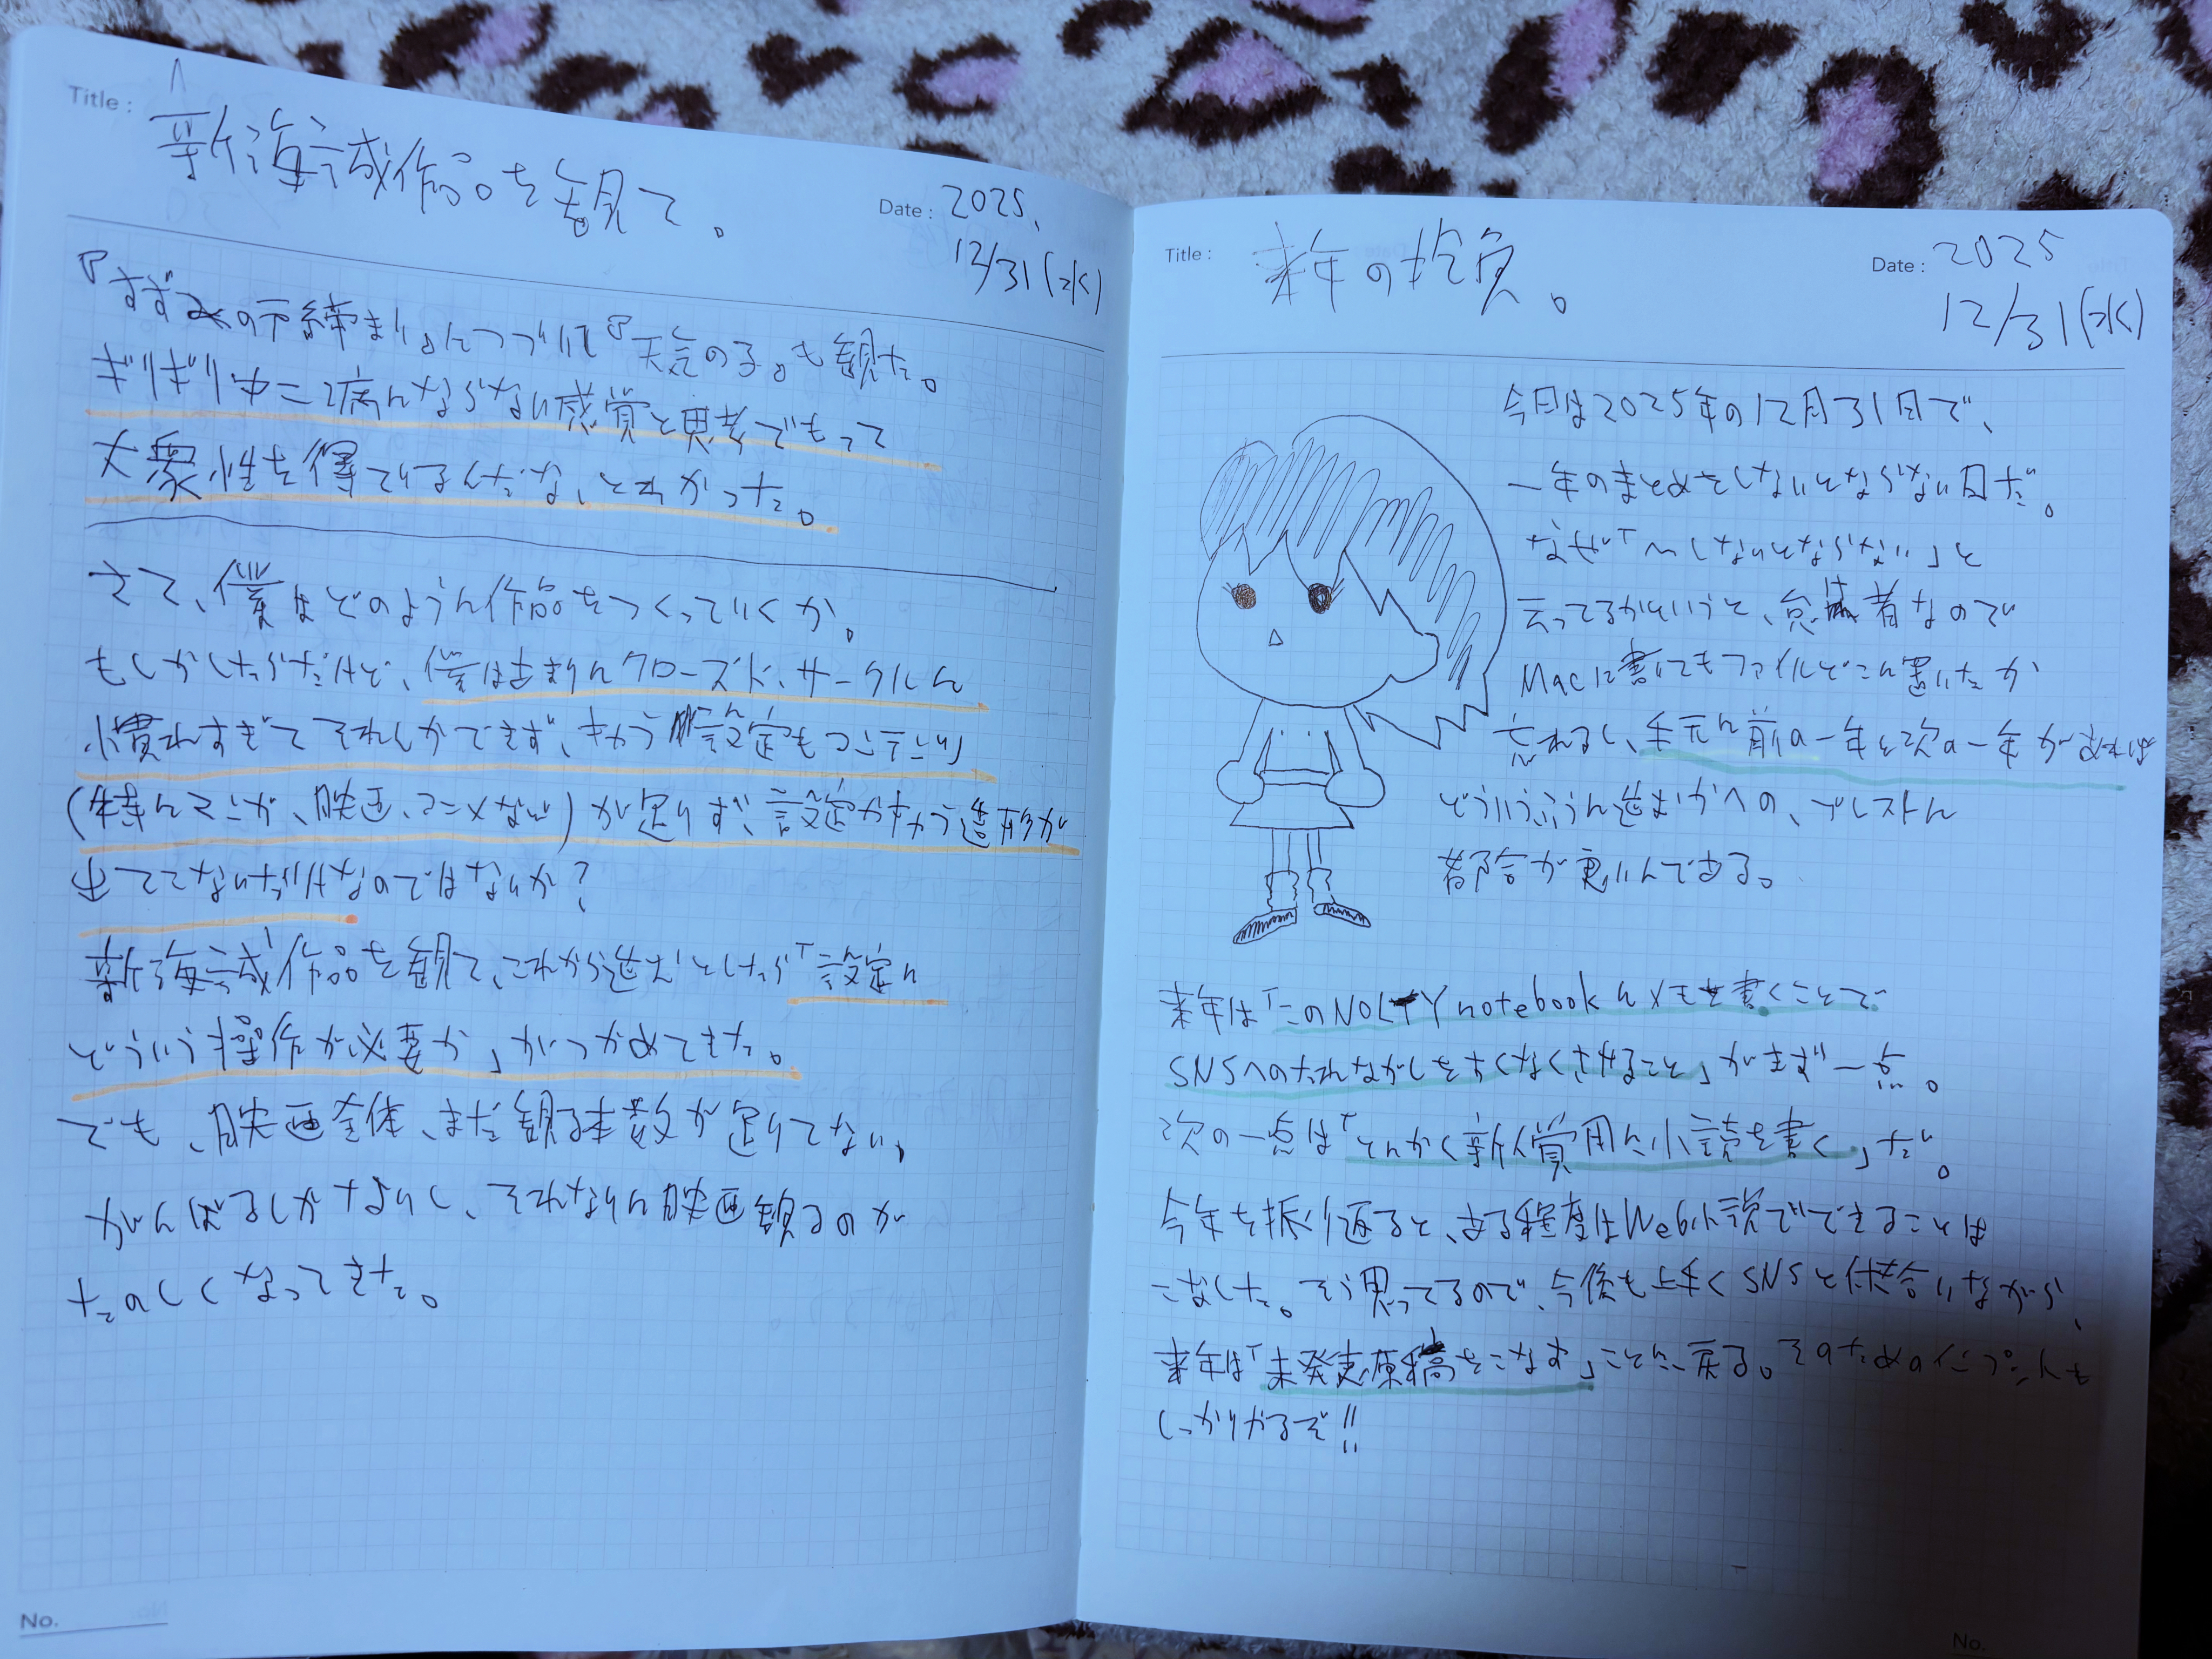 Title: 新海誠作品を観て。
Date: 2025.
12/31(水)
『すずめの戸締まり』につづいて『天気の子』も観た。
ギリギリ中二病にならない感覚と思考でもって
大衆性を得ているんだな、とわかった。
さて、僕はどのように作品をつくっていくか。
もしかしたらだけど、僕はあまりにクローズド・サークルに
慣れすぎてそれしかできず、きかう設定もコンテンツ
(特にマンガ、映画、アニメなど)が足りず、設定かきかう造形が
出てこないだけなのではないか?
新海誠作品を観て、これから進むとしたら「設定に
どういう操作が必要か」がつかめてきた。
でも、映画全体、まだ観る本数が足りてない。
がんばるしかないし、それなりに映画観るのが
たのしくなってきた。
No.
Title: 来年の抱負。
Date: 2025
12/31(水)
今日は2025年の12月31日で、
一年のまとめをしないとならない日だ。
なぜ「〜しないとならない」と
云ってるかというと、怠け者なので
Macに書いてもファイルどこに置いたか
忘れるし、手元に前の一年と次の一年があれば
どういうふうに進むかへの、ブレストに
都合が良いんである。
来年は「このNOLTY notebookにメモを書くことで
SNSへのたれながしをすくなくさせること」がまず一点。
次の一点は「とにかく新人賞用に小説を書く」だ。
今年を振り返ると、ある程度はWeb小説でできることは
こなした。そう思ってるので、今後も上手くSNSと付き合いながら、
来年は「未発表原稿をこなす」ことに戻る。そのためのインプットも
しっかりやるぞ!!
No.